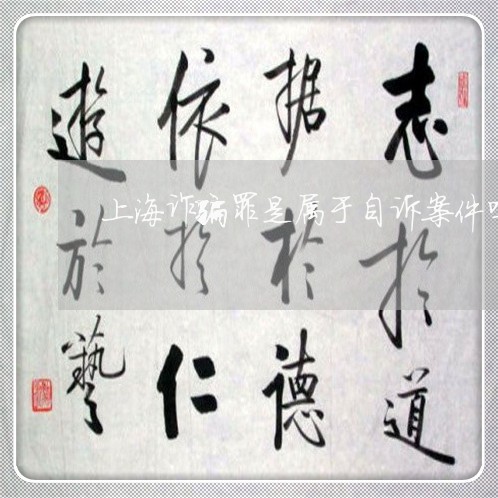 志於道
据於德
依於仁
遊於藝
上海诈骗罪是属于自诉案件